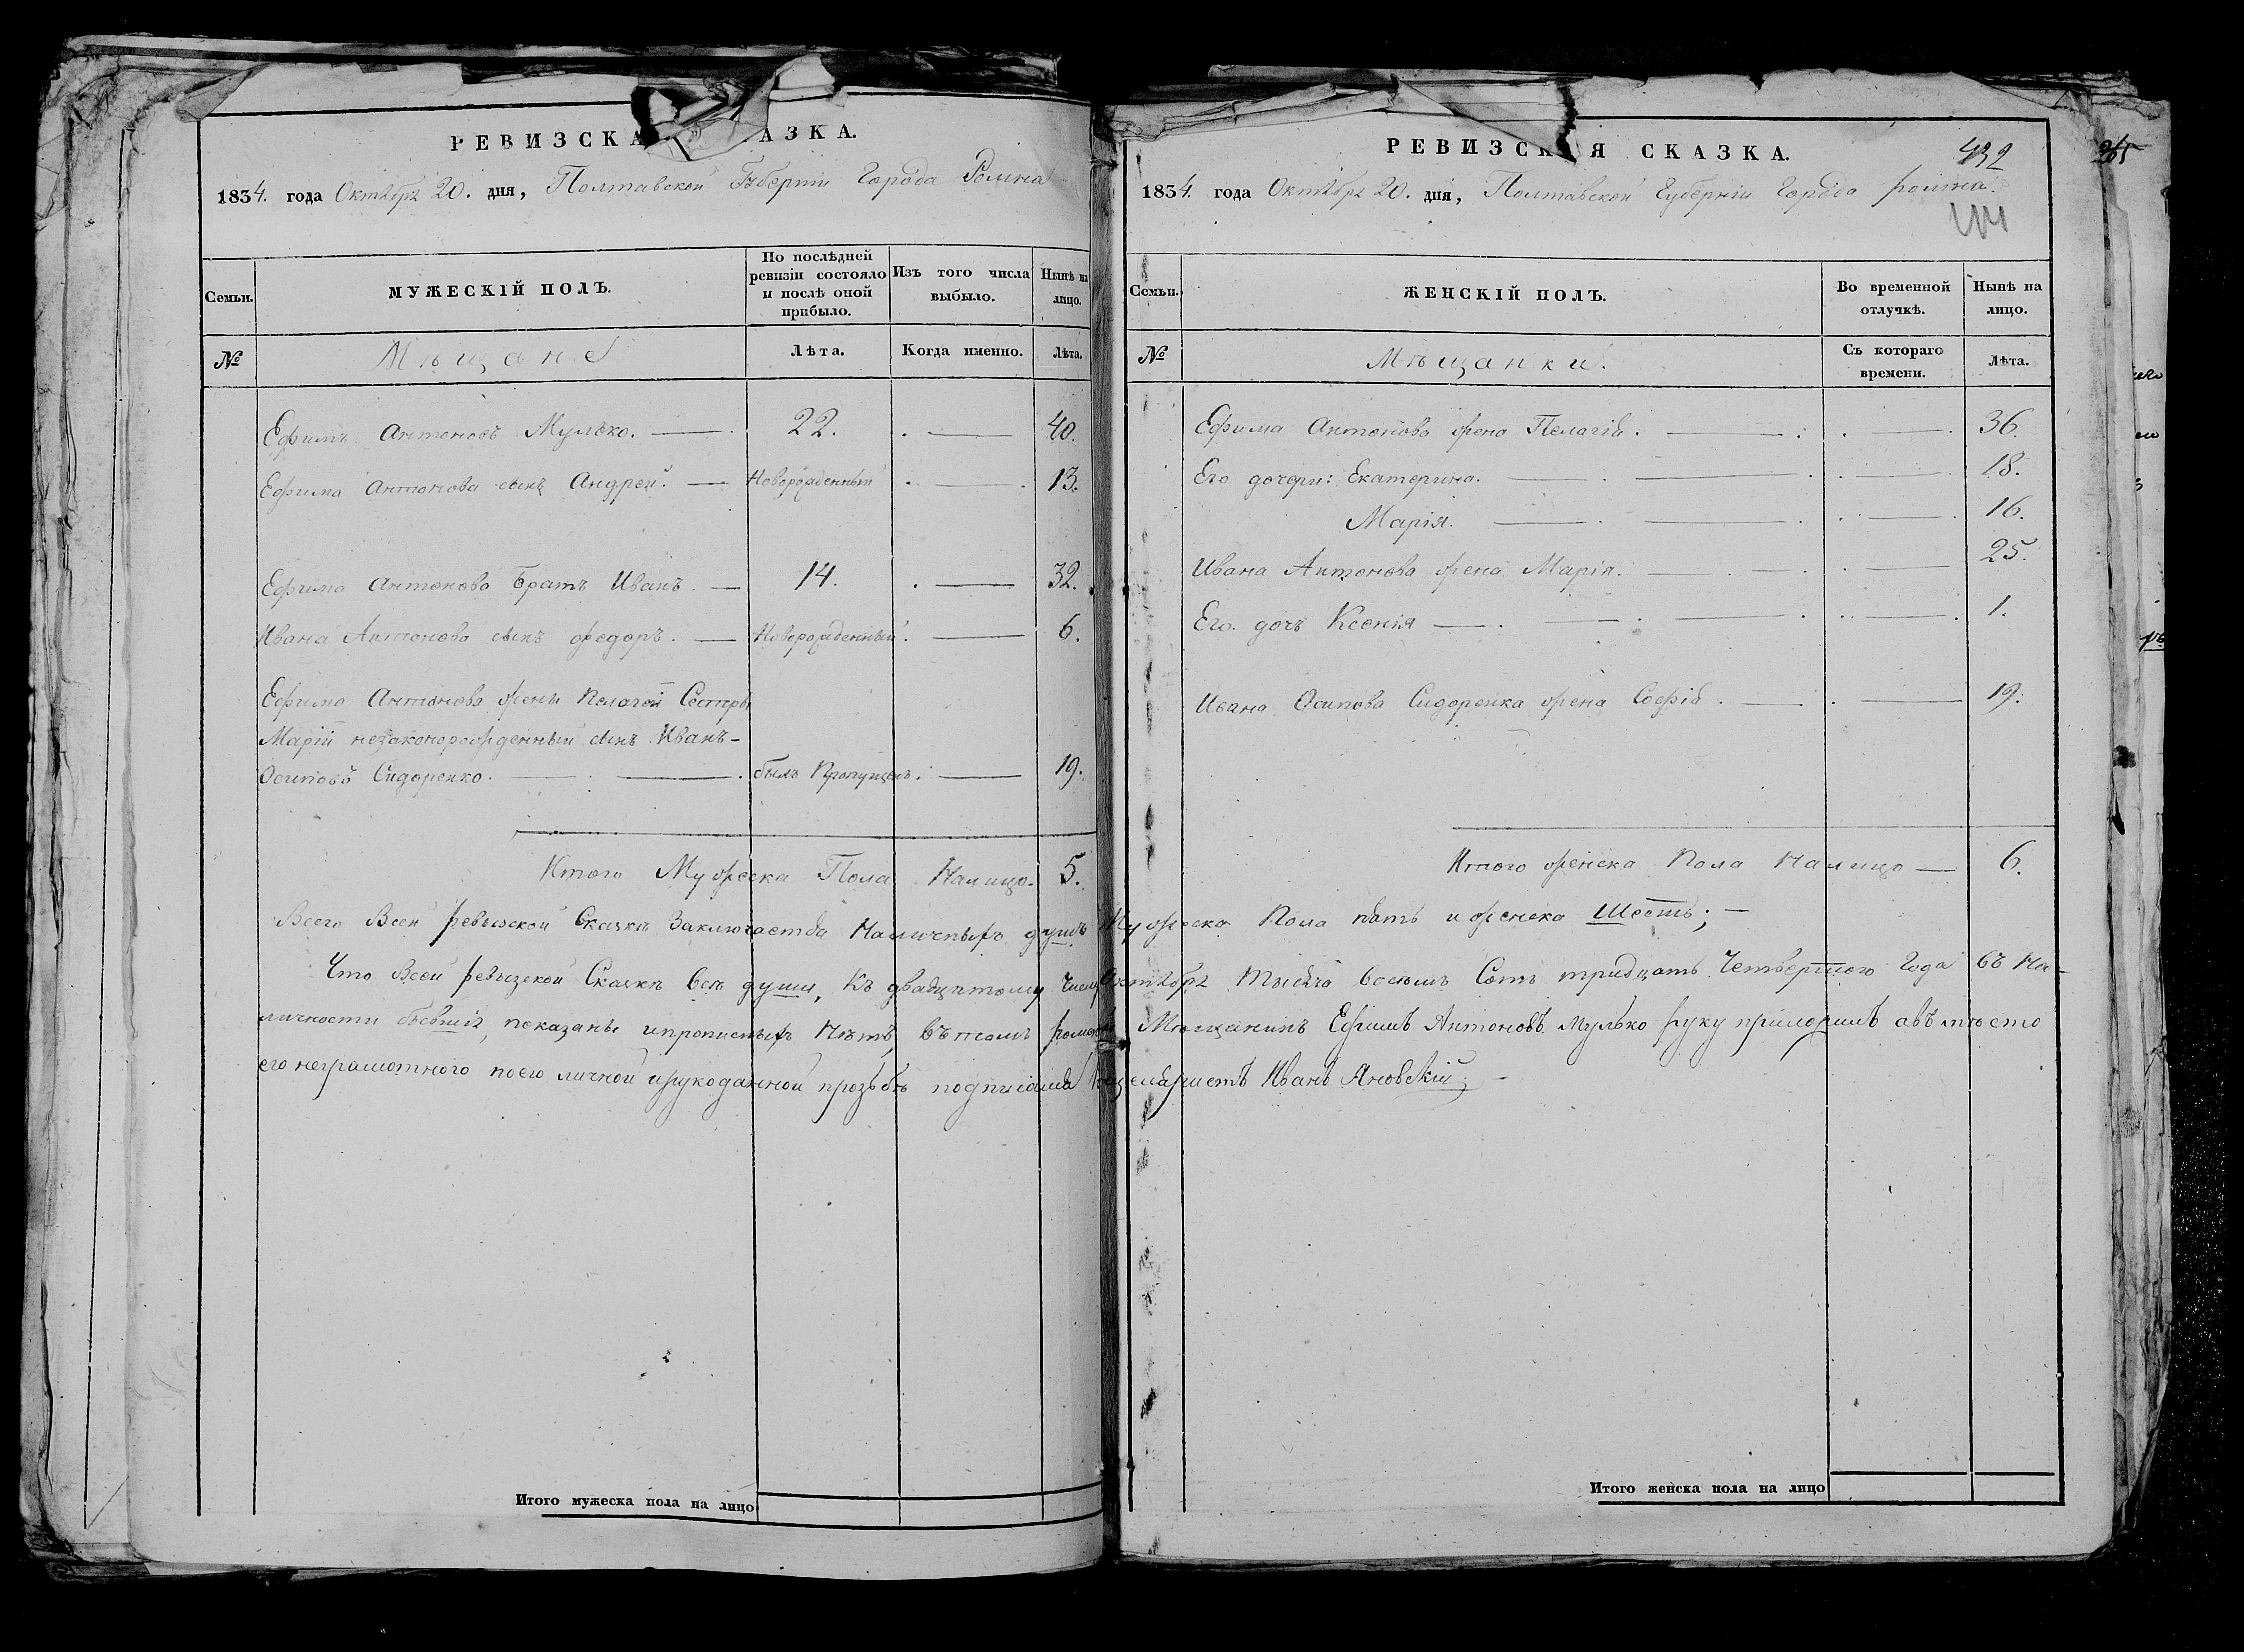 РЕВИЗСКА АЗКА.
1834. года Октября 20. дня, Полтавской Губерніи Города Ромна
Семьи.
МУЖЕСКІЙ ПОЛЪ.
По послѣдней ревизіи состояло и послѣ оной прибыло.
Изъ того числа выбыло.
Нынѣ на лицо.
№
Мѣщане
Лѣта.
Когда именно.
Лѣта.
Ефимъ Антоновъ Мулько. — 22. — 40.
Ефима Антонова сынъ Андрей. — Новорожденный — 13.
Ефима Антонова Братъ Иванъ. — 14. — 32.
Ивана Антонова сынъ Федоръ. — Новорожденный. — 6.
Ефима Антонова жены Пелагеи Сестры
Маріи незаконорожденный сынъ Иванъ
Осиповъ Сидоренко. — былъ Пропущенъ. — 19.
Итого Мужеска Пола Налицо. 5.
РЕВИЗСКАЯ СКАЗКА.
432
1834. года Октября 20. дня, Полтавской Губерніи Города Ромна.
Семьи.
ЖЕНСКІЙ ПОЛЪ.
Во временной отлучкѣ.
Нынѣ на лицо.
№
Мѣщанки.
Съ котораго времени.
Лѣта.
Ефима Антонова жена Пелагія. — 36.
Его дочери: Екатерина. — 18.
Марія. — 16.
Ивана Антонова жена Марія. — 25.
Его дочь Ксенія — 1.
Ивана Осипова Сидоренка жена Софія. — 19.
Итого женска Пола Налицо — 6.
Всего Всей ревызской Сказкѣ Заключается Наличныхъ душъ Мужеска Пола пять и женска Шесть; —
Что Всей ревызской Сказкѣ всѣ души, Къ двадцятому Числу Октября Тысяча восемъ Сотъ тридцать Четвертого Года въ На-
личности бывшія, показаны ипрописныхъ Нѣтъ, въ томъ роменскій Мѣщанинъ Ефимъ Антоновъ Мулько руку приложилъ авъмѣсто
его неграмотного поего личной ирукоданной прозьбѣ подписался Канцеляристъ Иванъ Яновскій —
Итого мужеска пола на лицо
Итого женска пола на лицо